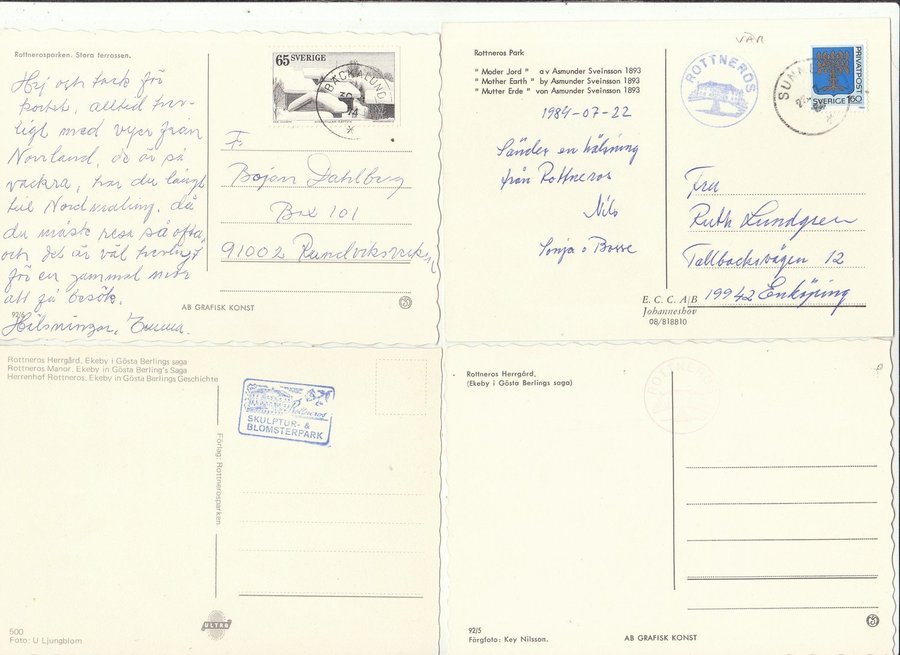 Rottnerosparken. Stora terrassen.
Hej och tack för
kortet, alltid trev-
ligt med vyer från
Norrland, de är så
vackra, har du långt
till Nordmaling, då
du måste resa så ofta,
och det är väl trevligt
för en gammal mor
att få besök.
Hälsningar, Emma.
92/6
AB GRAFISK KONST
65 SVERIGE
BÄCKALUND
30
74
F.
Bojan Dahlberg
Box 101
91002 Rundviksverken
Rottneros Park
" Moder Jord " av Asmunder Sveinsson 1893
" Mother Earth " by Asmunder Sveinsson 1893
" Mutter Erde " von Asmunder Sveinsson 1893
1984-07-22
Sänder en hälsning
från Rottneros
Nils
Sonja o Bosse
VAR
ROTTNEROS
SUNN
PRIVATPOST
SVERIGE 160
Fru
Ruth Lundgren
Tallbacksvägen 12
19942 Enköping
E. C. C. A|B
Johanneshov
08/818810
Rottneros Herrgård, Ekeby i Gösta Berlings saga
Rottneros Manor, Ekeby in Gösta Berling's Saga
Herrenhof Rottneros, Ekeby in Gösta Berlings Geschichte
Rottneros
SKULPTUR- &
BLOMSTERPARK
Förlag: Rottnerosparken
500
Foto: U Ljungblom
ULTRA
Rottneros Herrgård,
(Ekeby i Gösta Berlings saga)
92/5
Färgfoto: Key Nilsson.
AB GRAFISK KONST